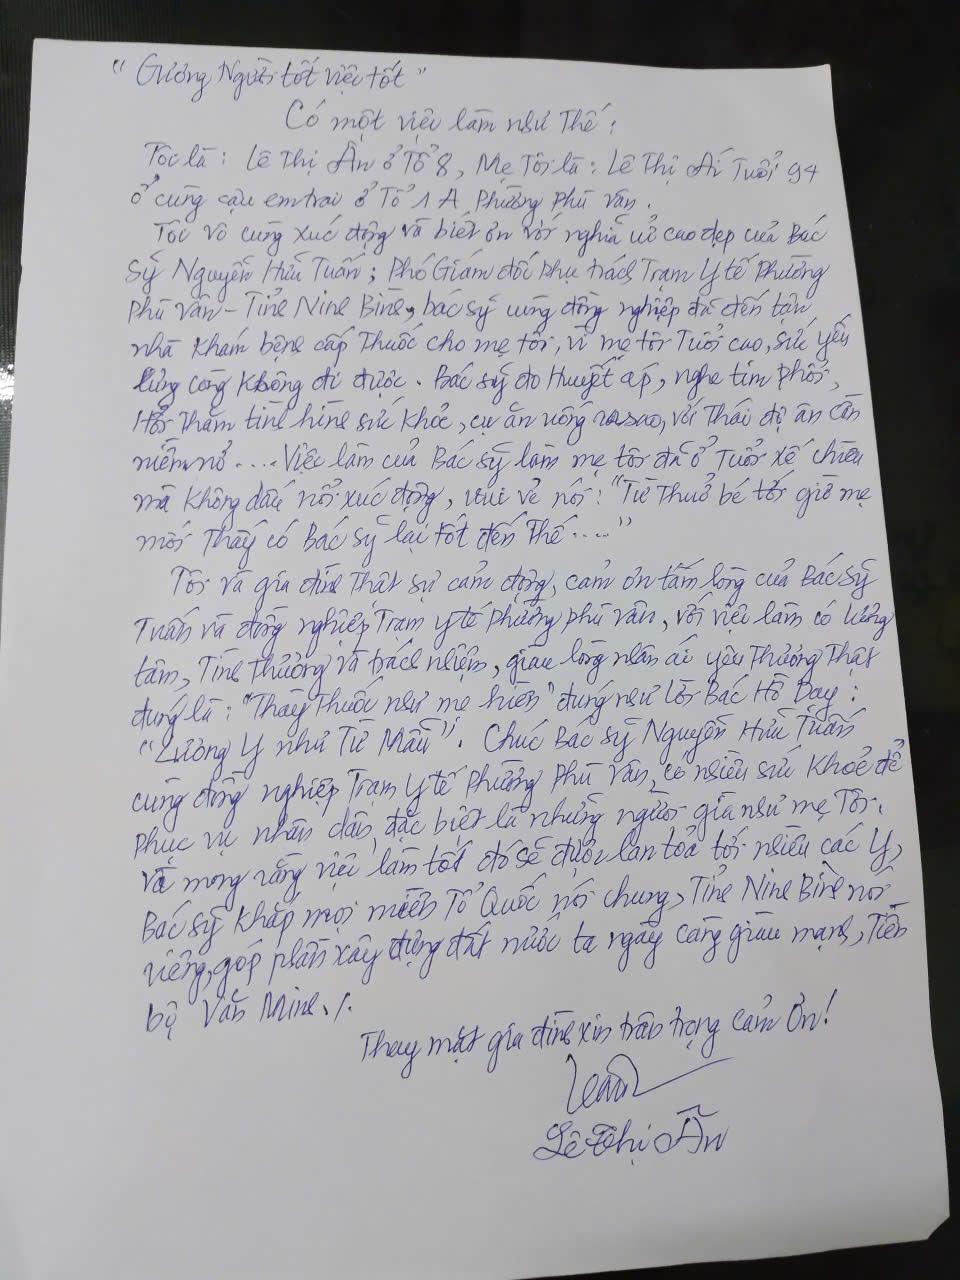 "Gương Người tốt việc tốt"
Có một việc làm như Thế:
Tôi là: Lê Thị Ân ở Tổ 8, Mẹ Tôi là: Lê Thị Ái Tuổi 94
ở cùng cậu em trai ở Tổ 1A Phường Phù Vân.
Tôi vô cùng xúc động và biết ơn với nghĩa cử cao đẹp của Bác
sỹ Nguyễn Hữu Tuấn; Phó Giám đốc phụ trách Trạm Y tế Phường
Phù Vân - Tỉnh Ninh Bình, bác sỹ cùng đồng nghiệp đã đến tận
nhà khám bệnh cấp Thuốc cho mẹ tôi, vì mẹ tôi Tuổi cao, sức yếu
lưng còng không đi được. Bác sỹ đo Huyết áp, nghe tim phổi,
Hỏi Thăm tình hình sức khỏe, cụ ăn uống ra sao, với Thái độ ân cần
niềm nở .... Việc làm của Bác sỹ làm mẹ tôi đã ở Tuổi xế chiều
mà không dấu nổi xúc động, vui vẻ nói: "Từ Thuở bé tới giờ mẹ
mới Thấy có Bác sỹ lại tốt đến Thế ...."
Tôi và gia đình Thật sự cảm động, cảm ơn tấm lòng của Bác sỹ
Tuấn và đồng nghiệp Trạm y tế Phường phù Vân, với việc làm có lương
tâm, Tình Thương và trách nhiệm, giàu lòng nhân ái yêu Thương Thật
đúng là: "Thầy Thuốc như mẹ hiền" đúng như lời Bác Hồ Dạy:
"Lương Y như Từ Mẫu". Chúc Bác sỹ Nguyễn Hữu Tuấn
cùng đồng nghiệp Trạm Y tế Phường Phù Vân, có nhiều sức khoẻ để
phục vụ nhân dân, đặc biệt là những người già như mẹ Tôi.
Và mong rằng việc làm tốt đó sẽ được lan toả tới nhiều các Y,
Bác sỹ khắp mọi miền Tổ Quốc nói chung, Tỉnh Ninh Bình nói
riêng, góp phần xây dựng đất nước ta ngày càng giàu mạnh, Tiến
bộ Văn Minh./.
Thay mặt gia đình xin trân trọng Cảm Ơn!
Lê Thị Ân